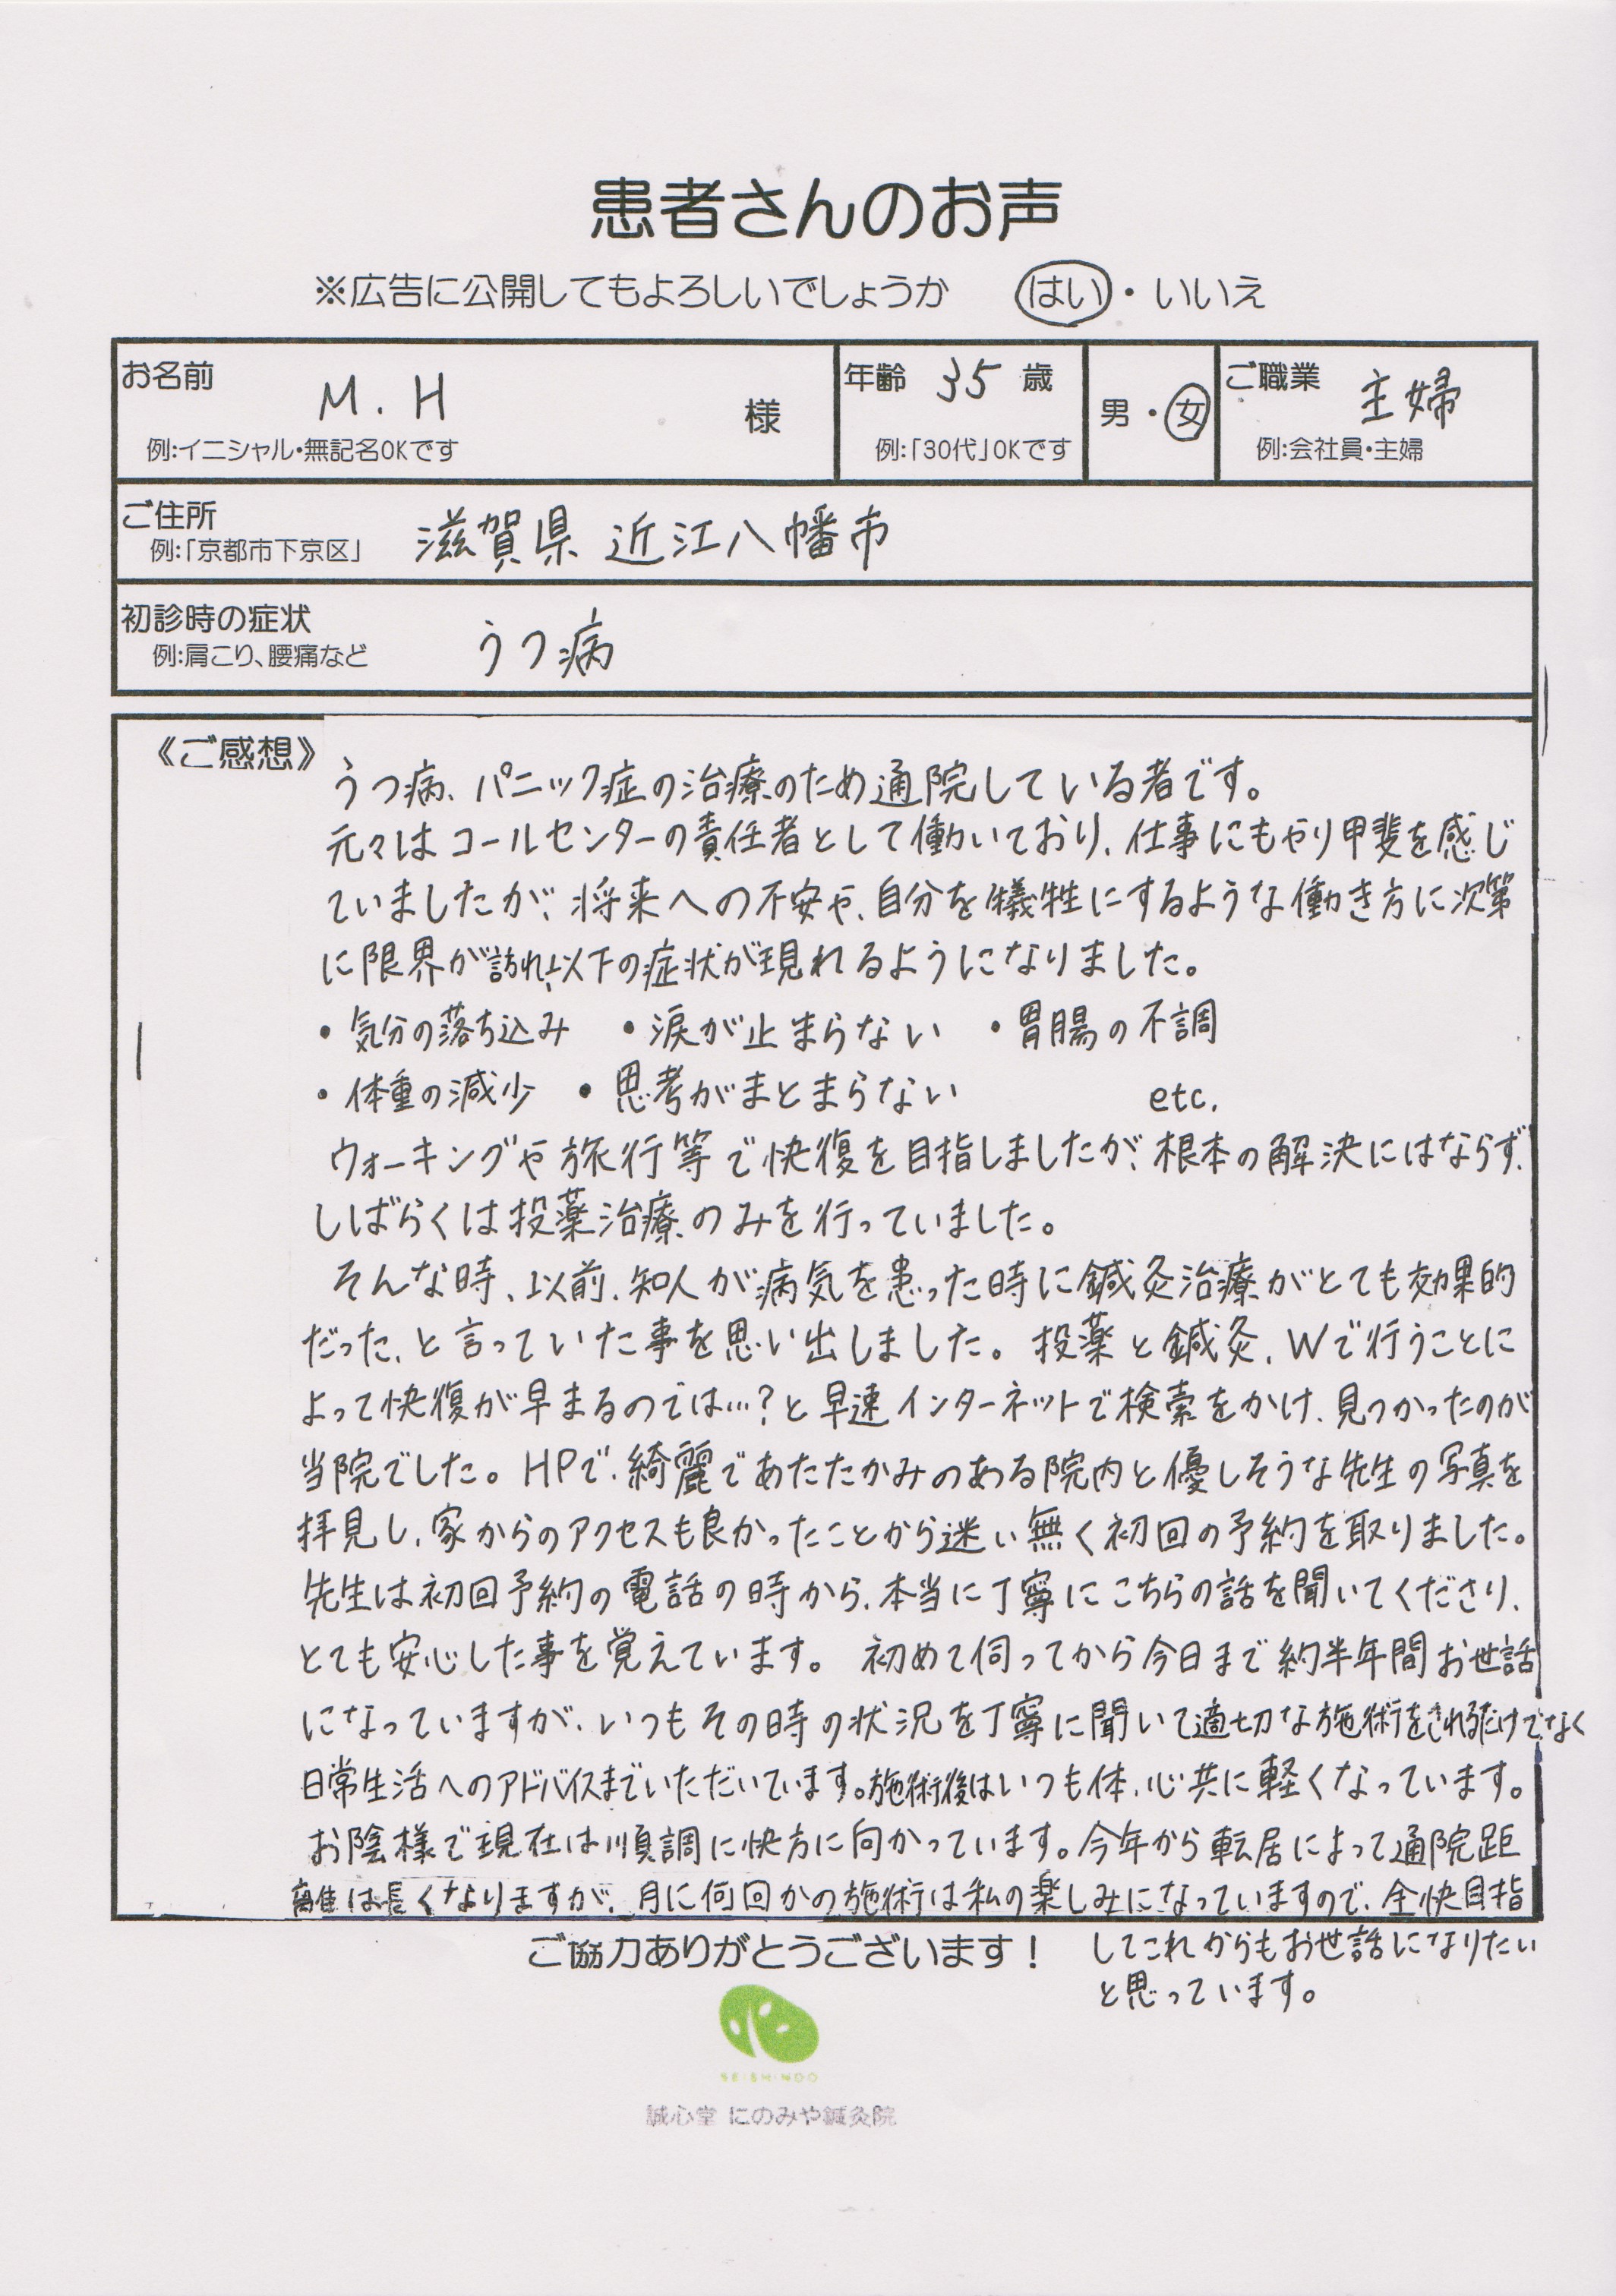 患者さんのお声
※広告に公開してもよろしいでしょうか　はい・いいえ
お名前　M.H　様
例:イニシャル・無記名OKです
年齢　35　歳
例:「30代」OKです
男・女
ご職業　主婦
例:会社員・主婦
ご住所　滋賀県 近江八幡市
例:「京都市下京区」
初診時の症状　うつ病
例:肩こり、腰痛など
《ご感想》
うつ病、パニック症の治療のため通院している者です。
元々はコールセンターの責任者として働いており、仕事にもやり甲斐を感じ
ていましたが、将来への不安や、自分を犠牲にするような働き方に次第
に限界が訪れ、以下の症状が現れるようになりました。
・気分の落ち込み　・涙が止まらない　・胃腸の不調
・体重の減少　・思考がまとまらない　etc.
ウォーキングや旅行等で快復を目指しましたが、根本の解決にはならず、
しばらくは投薬治療のみを行っていました。
そんな時、以前、知人が病気を患った時に鍼灸治療がとても効果的
だった、と言っていた事を思い出しました。投薬と鍼灸、Wで行うことに
よって快復が早まるのでは…?と早速インターネットで検索をかけ、見つかったのが
当院でした。HPで、綺麗であたたかみのある院内と優しそうな先生の写真を
拝見し、家からのアクセスも良かったことから迷い無く初回の予約を取りました。
先生は初回予約の電話の時から、本当に丁寧にこちらの話を聞いてくださり、
とても安心した事を覚えています。初めて伺ってから今日まで約半年間お世話
になっていますが、いつもその時の状況を丁寧に聞いて適切な施術をされるだけでなく
日常生活へのアドバイスまでいただいています。施術後はいつも体、心共に軽くなっています。
お陰様で現在は順調に快方に向かっています。今年から転居によって通院距
離は長くなりますが、月に何回かの施術は私の楽しみになっていますので、全快目指
してこれからもお世話になりたい
と思っています。
ご協力ありがとうございます！
SEISHINDO
誠心堂 にのみや鍼灸院